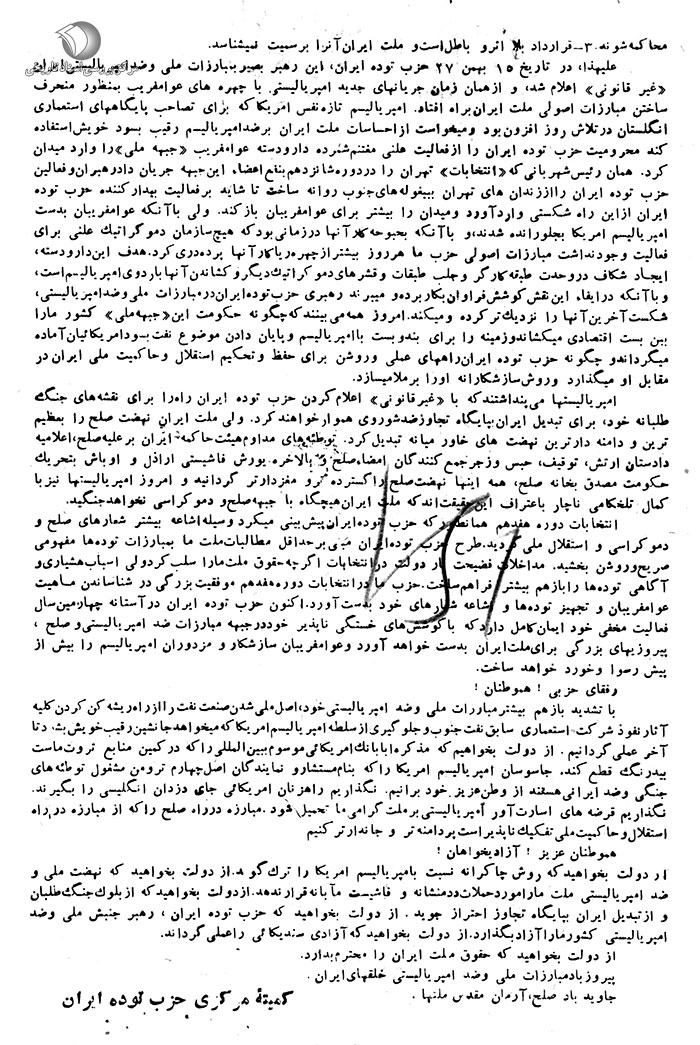 مرکز بررسی اسناد تاریخی
محاکمه شوند. ۳- قرارداد بلا اثر و باطل است و ملت ایران آنرا برسمیت نمیشناسد.
علیهذا، در تاریخ ۱۵ بهمن ۲۷ حزب توده ایران، این رهبر بصیر مبارزات ملی و ضد امپریالیستی ایران
«غیر قانونی» اعلام شد، و از همان زمان جریانهای جدید امپریالیستی با چهره های عوامفریب بمنظور منحرف
ساختن مبارزات اصولی ملت ایران براه افتاد. امپریالیسم تازه نفس امریکا که برای تصاحب پایگاههای استعماری
انگلستان در تلاش روز افزون بود و میخواست از احساسات ملت ایران بر ضد امپریالیسم رقیب بسود خویش استفاده
کند محرومیت حزب توده ایران را از فعالیت علنی مغتنم شمرده دارودسته عوامفریب «جبهه ملی» را وارد میدان
کرد. همان رئیس شهربانی که «انتخابات» تهران را در دوره شانزدهم بنفع اعضاء این جبهه جریان داد رهبران و فعالین
حزب توده ایران را از زندان های تهران ببیغوله های جنوب روانه ساخت تا شاید بر فعالیت بیدار کننده حزب توده
ایران از این راه شکستی وارد آورد و میدان را بیشتر برای عوامفریبان باز کند. ولی با آنکه عوامفریبان بدست
امپریالیسم امریکا بجلو رانده شدند، و با آنکه بحبوحه کار آنها در زمانی بود که هیچ سازمان دموکراتیک علنی برای
فعالیت وجود نداشت مبارزات اصولی حزب ما هر روز بیشتر از چهره ریاکار آنها پرده دری کرد. هدف این دارودسته،
ایجاد شکاف در وحدت طبقه کارگر و جلب طبقات و قشرهای دموکراتیک دیگر و کشاندن آنها باردوی امپریالیسم است،
و با آنکه در ایفاء این نقش کوشش فراوان بکار برده و میبرند رهبری حزب توده ایران در مبارزات ملی و ضد امپریالیستی،
شکست آخرین آنها را نزدیک تر کرده و میکند. امروز همه می بینند که چگونه حکومت این «جبهه ملی» کشور ما را
ببن بست اقتصادی میکشاند و زمینه را برای بندوبست با امپریالیسم و پایان دادن موضوع نفت بسود امریکائیان آماده
میگرداند و چگونه حزب توده ایران راههای عملی و روشن برای حفظ و تحکیم استقلال و حاکمیت ملی ایران در
مقابل او میگذارد و روش سازشکارانه او را بر ملا میسازد.
امپریالیستها می پنداشتند که با «غیر قانونی» اعلام کردن حزب توده ایران راه را برای نقشه های جنگ
طلبانه خود، برای تبدیل ایران بپایگاه تجاوز ضد شوروی هموار خواهند کرد. ولی ملت ایران نهضت صلح را بعظیم
ترین و دامنه دارترین نهضت های خاور میانه تبدیل کرد. توطئه های مداوم هیئت حاکمه ایران بر علیه صلح، اعلامیه
دادستان ارتش، توقیف، حبس و زجر جمع کنندگان امضاء صلح و بالاخره یورش فاشیستی اراذل و اوباش بتحریک
حکومت مصدق بخانه صلح، همه اینها نهضت صلح را گسترده تر و مغزدارتر گردانید و امروز امپریالیستها نیز با
کمال تلخکامی ناچار باعتراف این حقیقت اند که ملت ایران هیچگاه با جبهه صلح و دموکراسی نخواهد جنگید.
انتخابات دوره هفدهم همانطور که حزب توده ایران پیش بینی میکرد وسیله اشاعه بیشتر شعارهای صلح و
دموکراسی و استقلال ملی گردید. طرح حزب توده ایران مبنی بر حداقل مطالبات ملت ما بمبارزات توده ها مفهومی
صریح و روشن بخشید. مداخلات فضیحت بار دولت در انتخابات اگر چه حقوق ملت ما را سلب کرد ولی اسباب هشیاری و
آگاهی توده ها را باز هم بیشتر فراهم ساخت. حزب ما در انتخابات دوره هفدهم موفقیت بزرگی در شناساندن ماهیت
عوامفریبان و تجهیز توده ها و اشاعه شعارهای خود بدست آورد. اکنون حزب توده ایران در آستانه چهارمین سال
فعالیت مخفی خود ایمان کامل دارد که با کوشش های خستگی ناپذیر خود در جبهه مبارزات ضد امپریالیستی و صلح،
پیروزیهای بزرگی برای ملت ایران بدست خواهد آورد و عوامفریبان سازشکار و مزدوران امپریالیسم را بیش از
پیش رسوا و خورد خواهد ساخت.
رفقای حزبی! هموطنان!
با تشدید باز هم بیشتر مبارزات ملی و ضد امپریالیستی خود، اصل ملی شدن صنعت نفت را از راه ریشه کن کردن کلیه
آثار نفوذ شرکت استعماری سابق نفت جنوب و جلوگیری از سلطه امپریالیسم امریکا که میخواهد جانشین رقیب خویش بشود تا
آخر عملی گردانیم. از دولت بخواهیم که مذاکره با بانک امریکائی موسوم ببین المللی را که در کمین منابع ثروت ماست
بیدرنگ قطع کند. جاسوسان امپریالیسم امریکا را که بنام مستشار و نمایندگان اصل چهارم ترومن مشغول توطئه های
جنگی و ضد ایرانی هستند از وطن عزیز خود برانیم. نگذاریم راهزنان امریکائی جای دزدان انگلیسی را بگیرند.
نگذاریم قرضه های اسارت آور امپریالیستی بر ملت گرامی ما تحمیل شود. مبارزه در راه صلح را که از مبارزه در راه
استقلال و حاکمیت ملی تفکیک ناپذیر است پردامنه تر و جاندارتر کنیم
هموطنان عزیز! آزادیخواهان!
از دولت بخواهید که روش چاکرانه نسبت بامپریالیسم امریکا را ترک گوید. از دولت بخواهید که نهضت ملی و
ضد امپریالیستی ملت ما را مورد حملات ددمنشانه و فاشیست مآبانه قرار ندهد. از دولت بخواهید که از بلوک جنگ طلبان
و از تبدیل ایران بپایگاه تجاوز احتراز جوید. از دولت بخواهید که حزب توده ایران، رهبر جنبش ملی و ضد
امپریالیستی کشور ما را آزاد بگذارد. از دولت بخواهید که آزادی سندیکائی را عملی گرداند.
از دولت بخواهید که حقوق ملت ایران را محترم بدارد.
پیروز باد مبارزات ملی و ضد امپریالیستی خلقهای ایران.
جاوید باد صلح، آرمان مقدس ملتها.
کمیتهٔ مرکزی حزب توده ایران